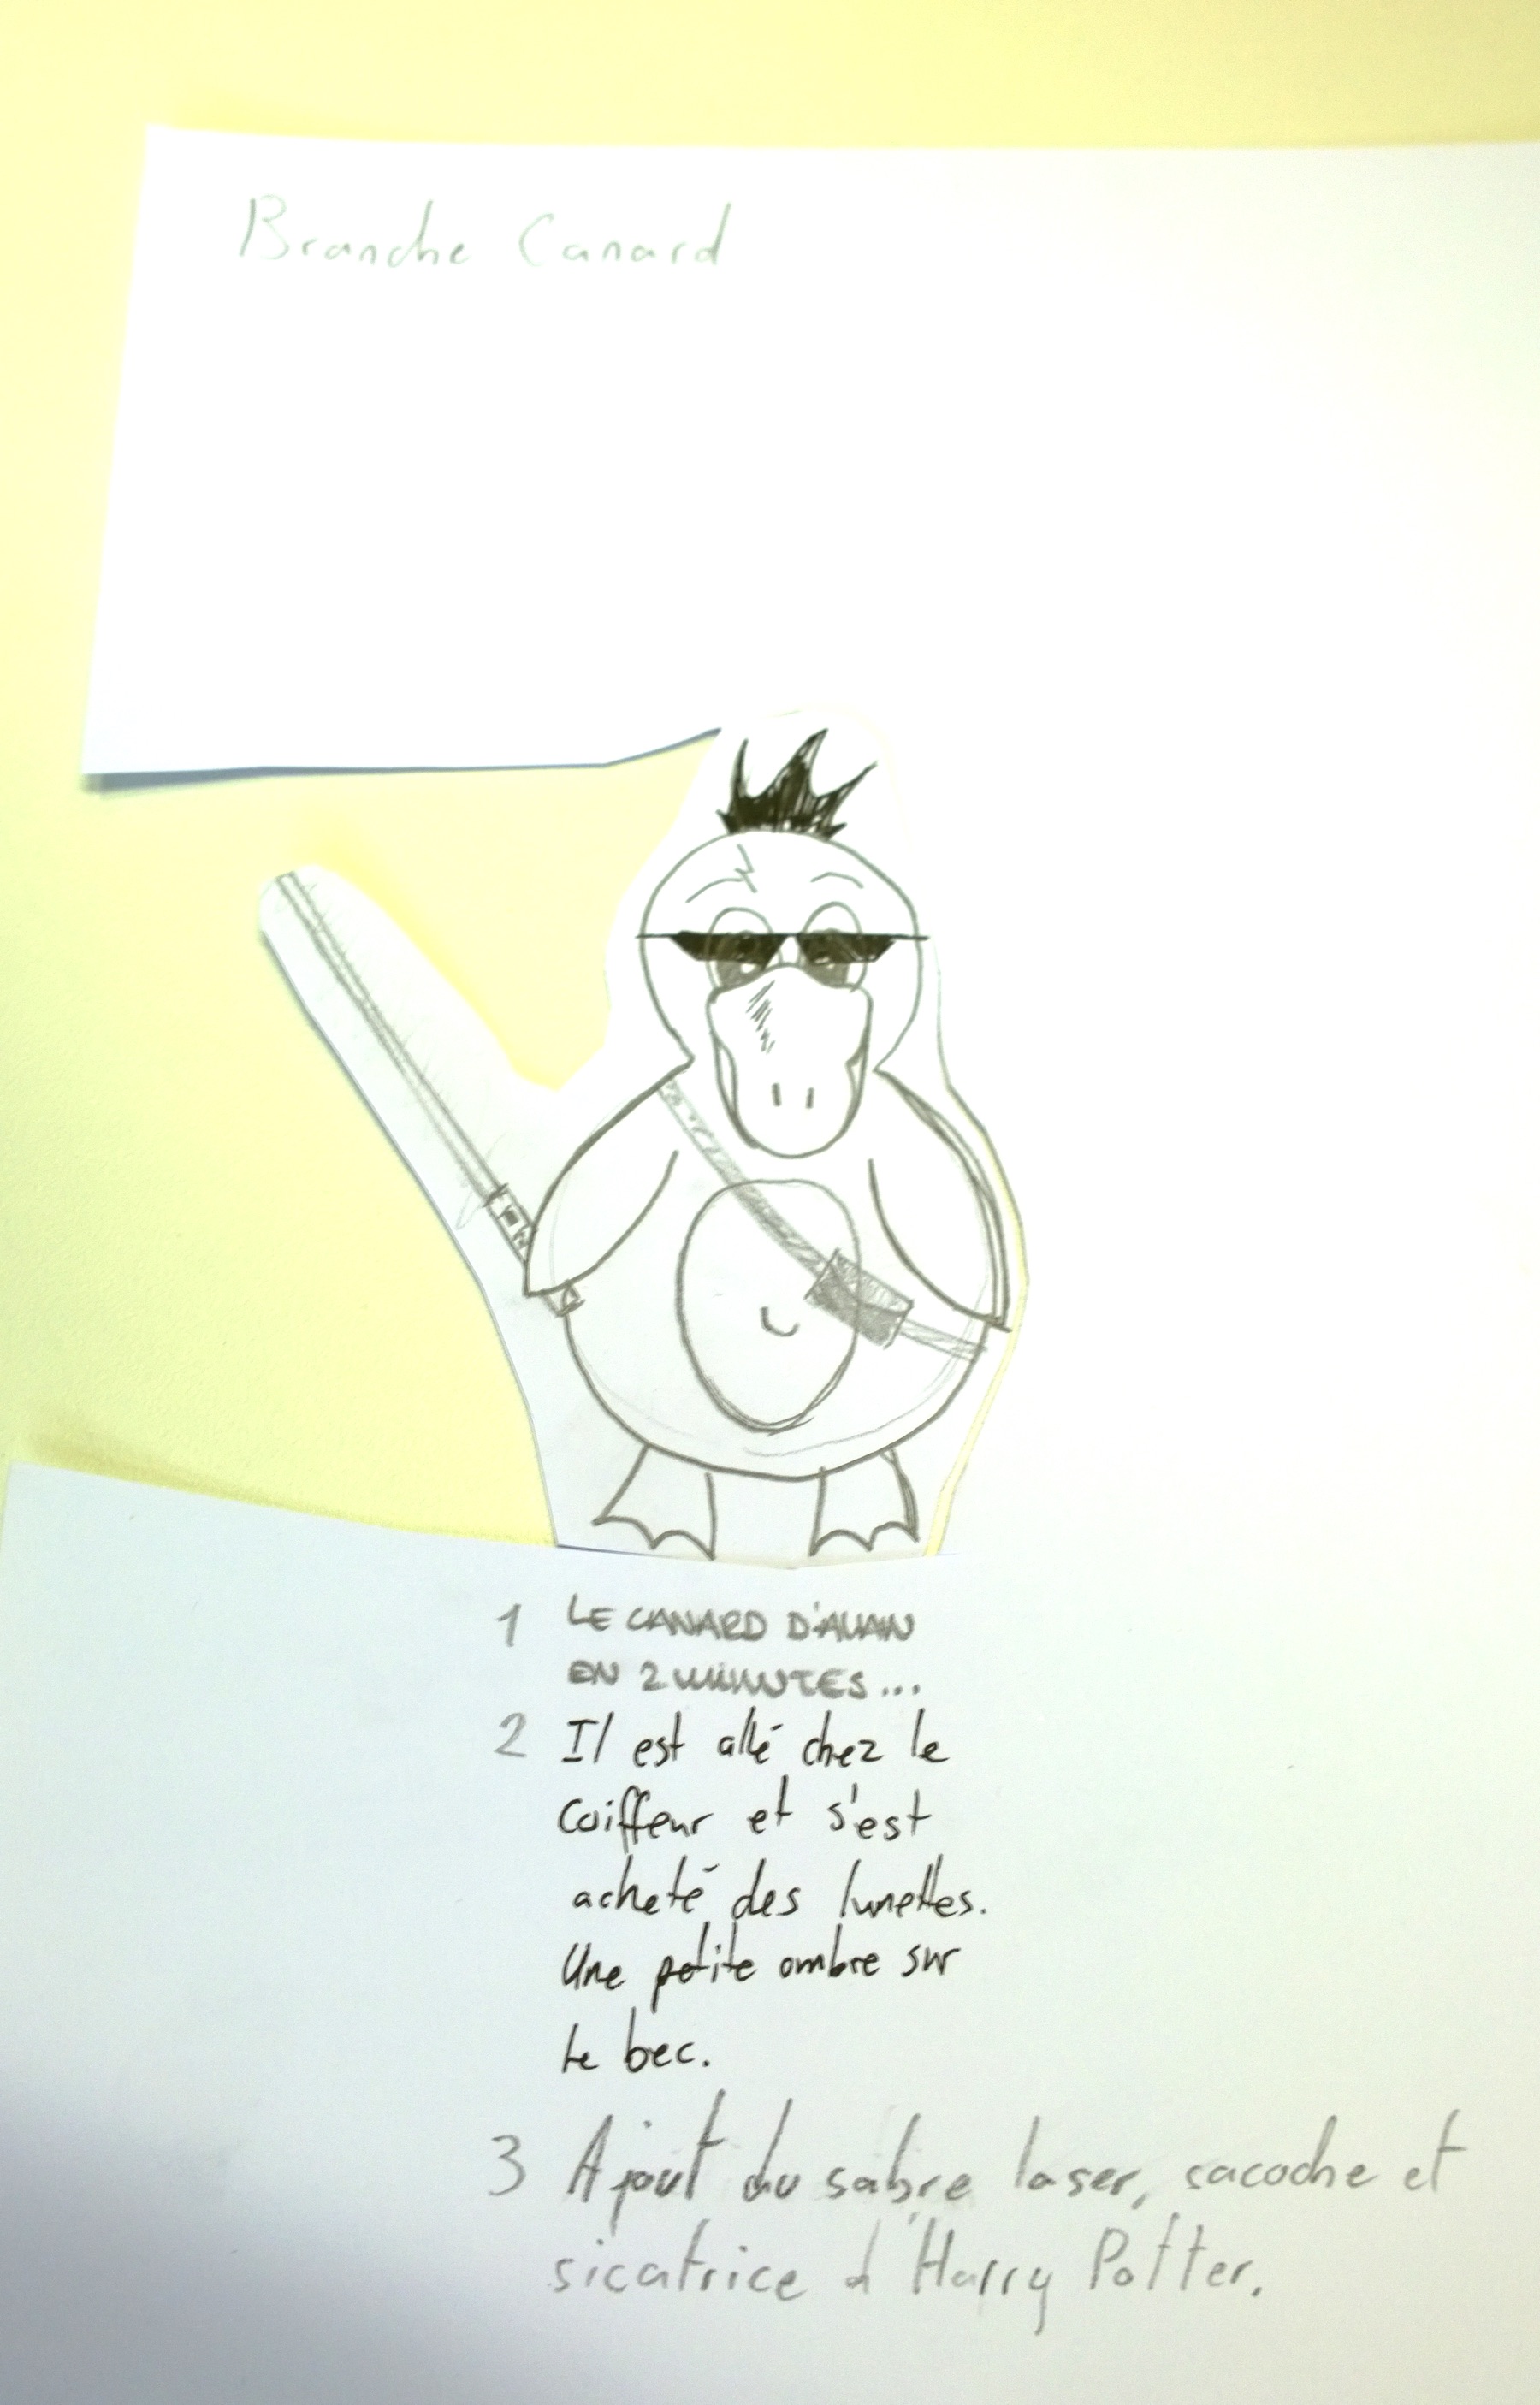 Branche Canard
1 LE CANARD D'ALIAIN
EN 2 MINUTES...
2 Il est allé chez le
coiffeur et s'est
acheté des lunettes.
Une petite ombre sur
le bec.
3 Ajout du sabre laser, sacoche et
sicatrice d'Harry Potter.